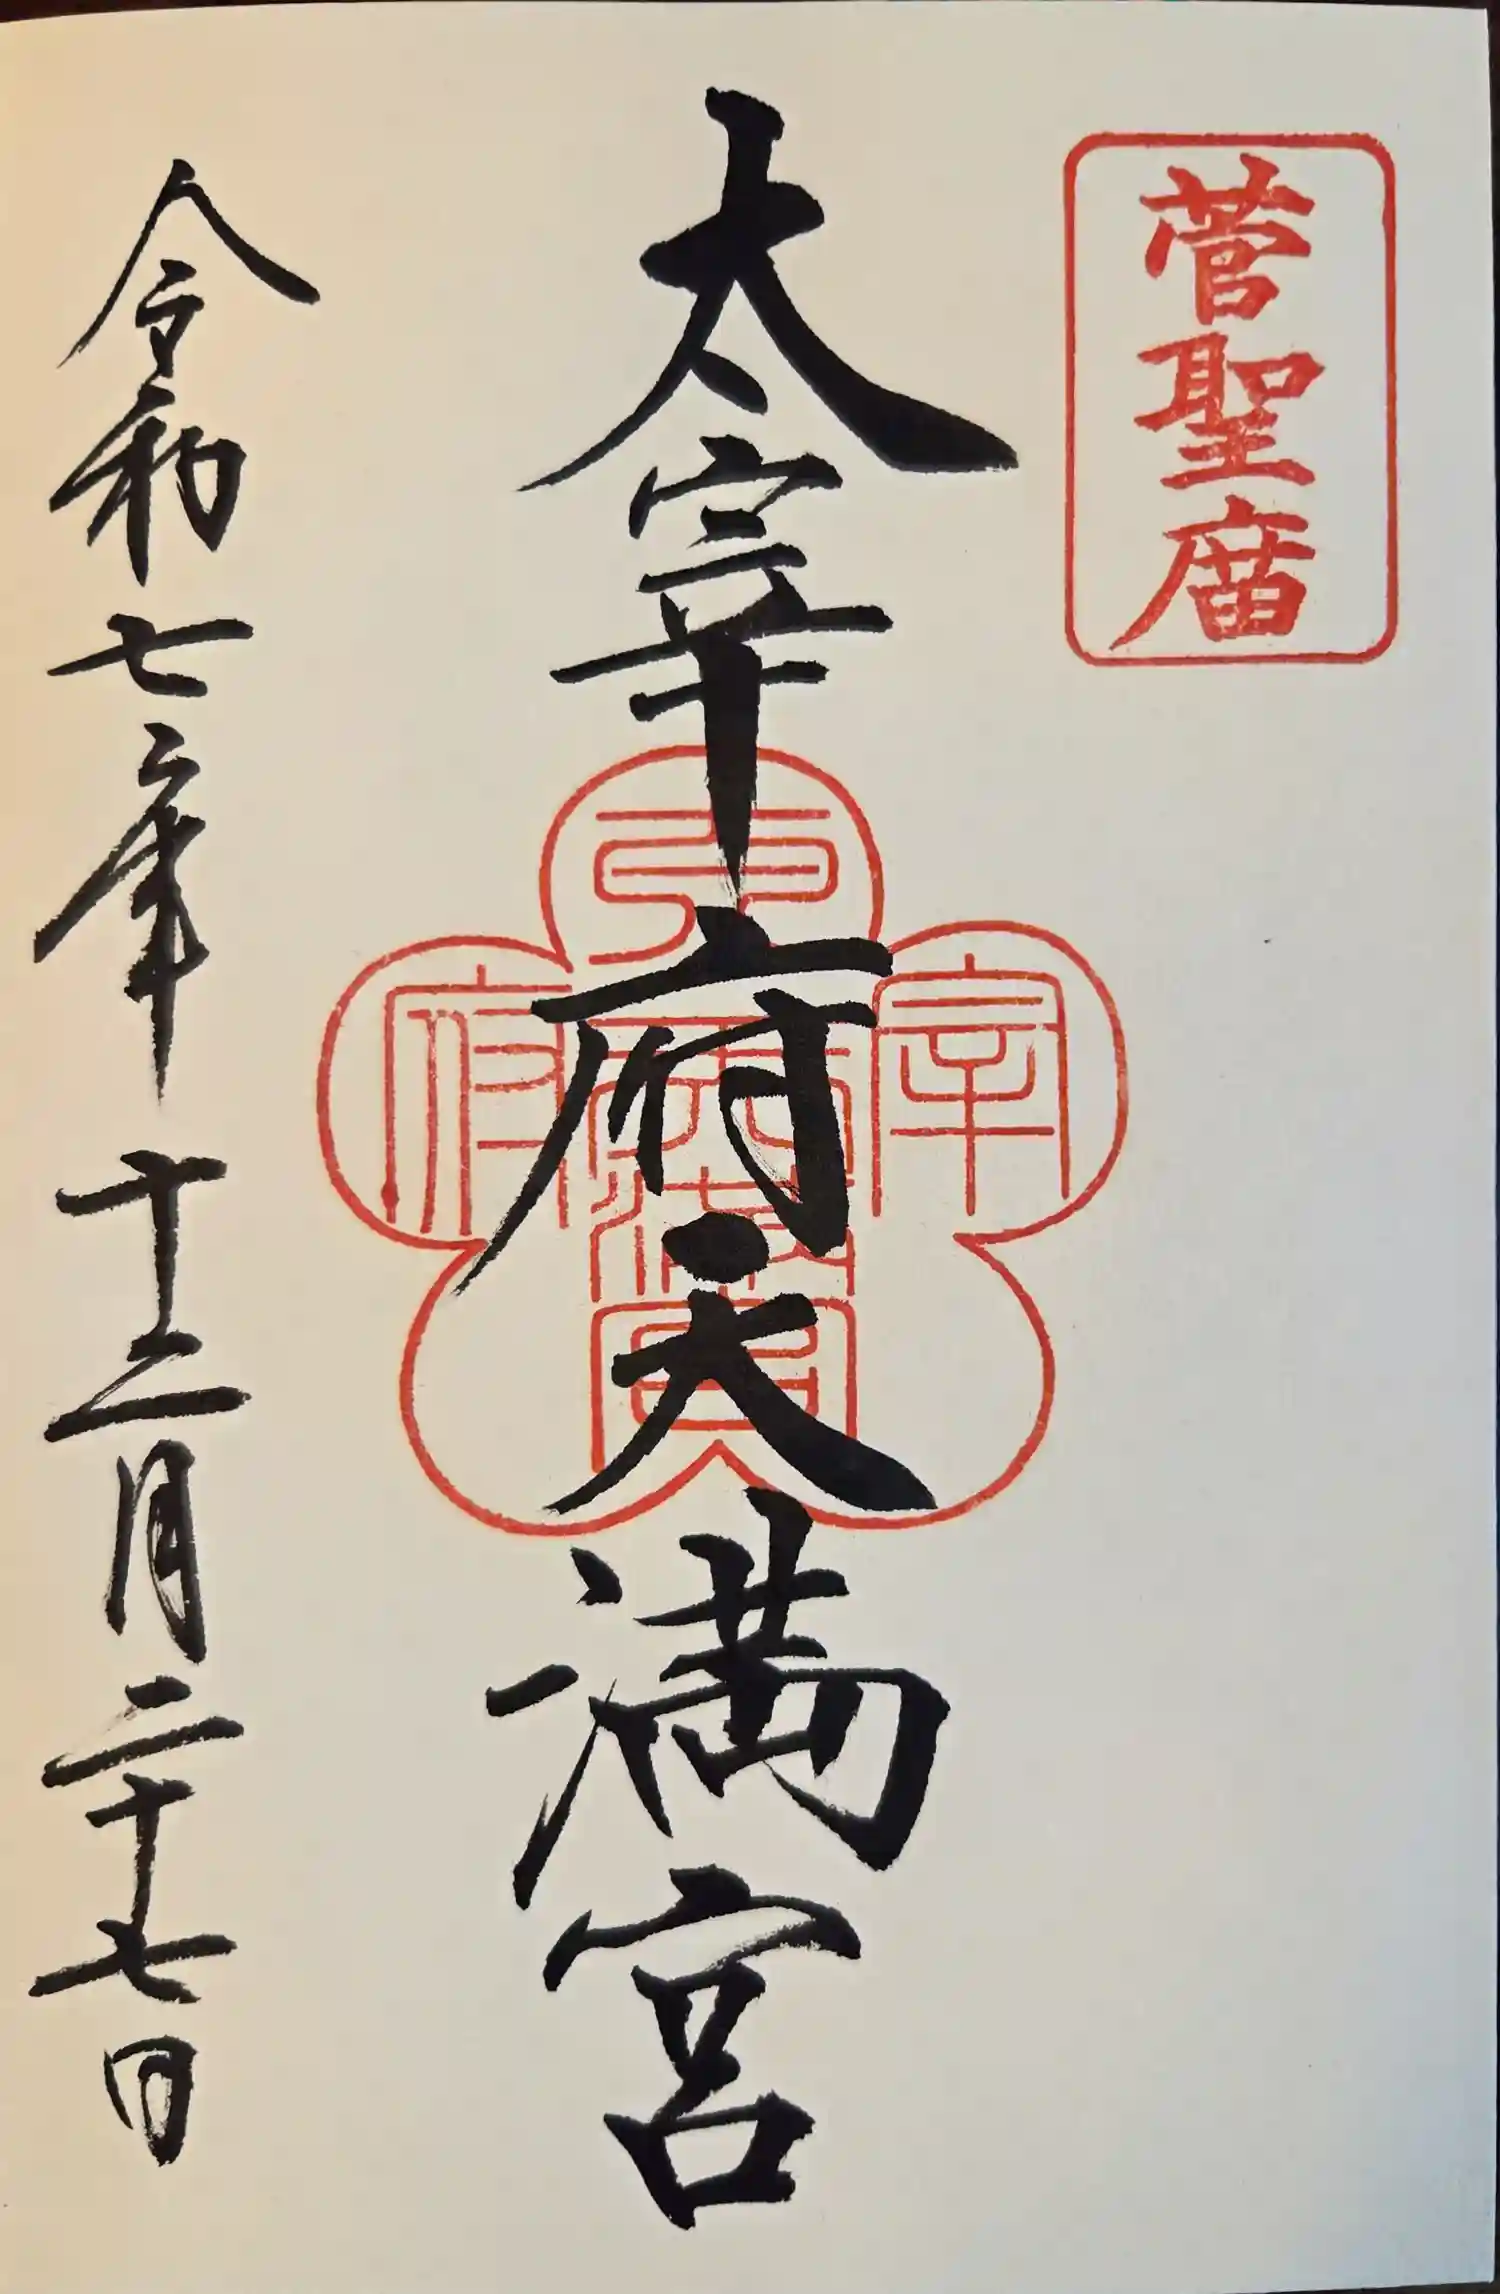 菅聖庿
太宰府天満宮
宰府
令和七年十二月二十七日